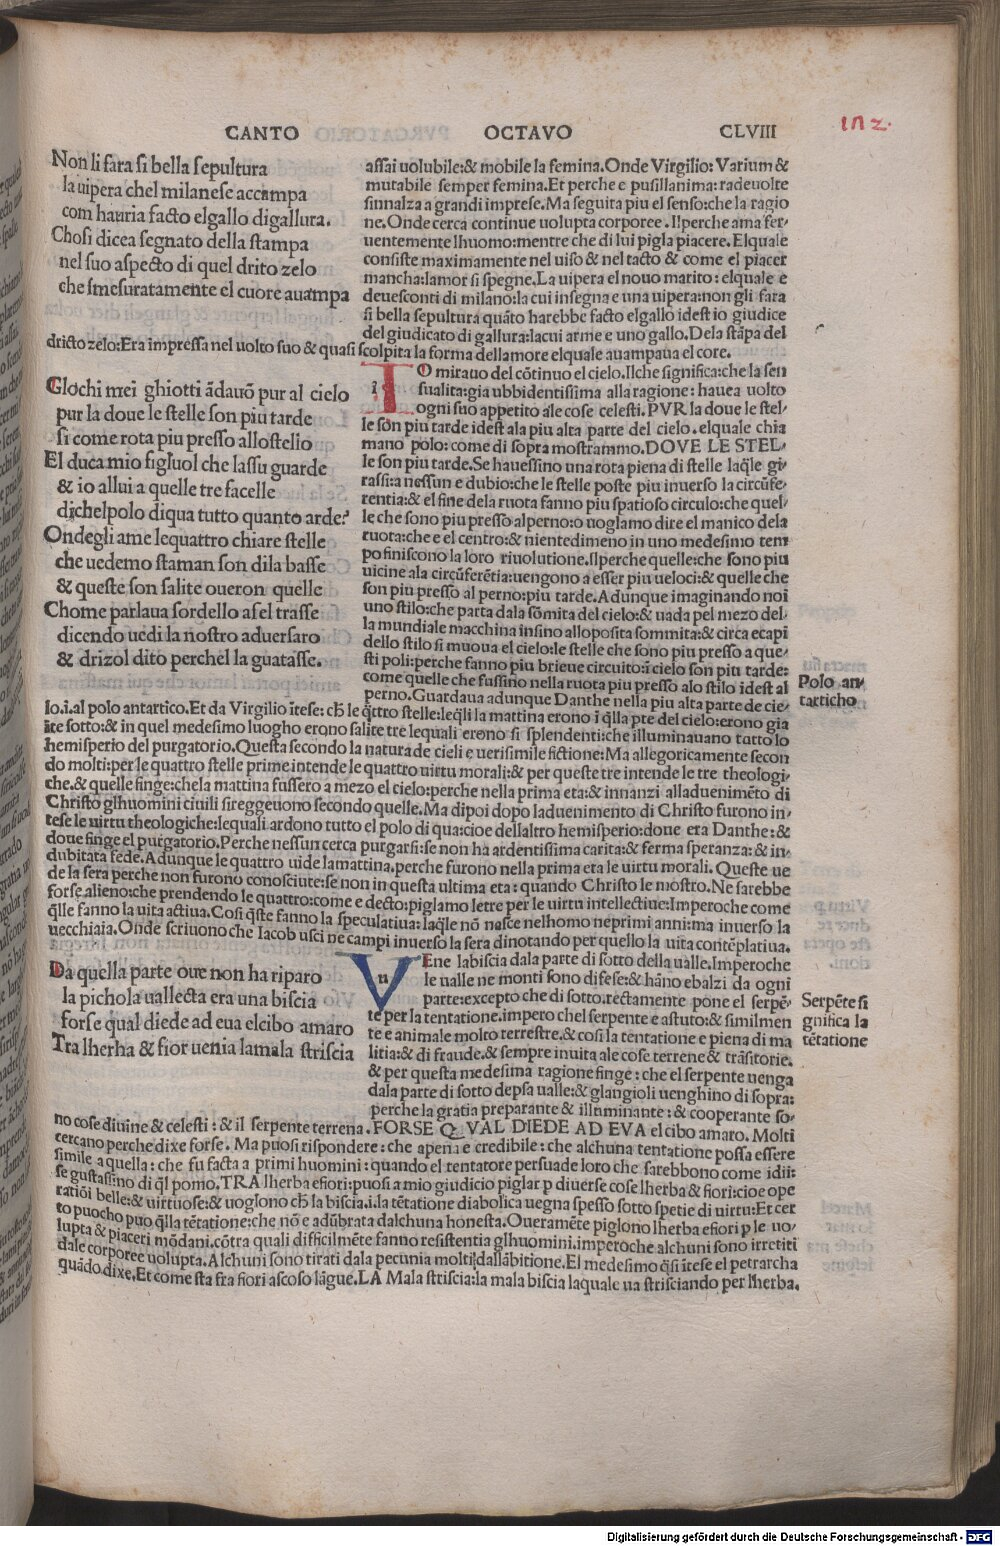 CANTO OCTAVO CLVIII
172.
Non li fara si bella sepultura
la uipera chel milanese accampa
com hauria facto elgallo digallura.
Chosi dicea segnato della stampa
nel suo aspecto di quel drito zelo
che smesuratamente el cuore auampa
assai uolubile:& mobile la femina.Onde Virgilio: Varium &
mutabile semper femina.Et perche e pusillanima: radeuolte
sinnalza a grandi imprese.Ma seguita piu el senso:che la ragio
ne.Onde cerca continue uolupta corporee .Ilperche ama fer-
uentemente lhuomo:mentre che di lui pigla piacere.Elquale
consiste maximamente nel uiso & nel tacto & come el piacer
mancha:lamor si spegne.La uipera el nouo marito: elquale e
deuesconti di milano:la cui insegna e una uipera:non gli fara
si bella sepultura quāto harebbe facto elgallo idest io giudice
del giudicato di gallura:lacui arme e uno gallo.Dela stāpa del
dricto zelo:Era impressa nel uolto suo & quasi scolpita la forma dellamore elquale auampaua el core.
Glochi mei ghiotti ādauō pur al cielo
pur la doue le stelle son piu tarde
si come rota piu presso allostelio
El duca mio figluol che lassu guarde
& io allui a quelle tre facelle
dichelpolo diqua tutto quanto arde?
Ondegli ame lequattro chiare stelle
che uedemo staman son dila basse
& queste son salite oueron quelle
Chome parlaua sordello asel trasse
dicendo uedi la nostro aduersaro
& drizol dito perchel la guatasse.
TO mirauo del cōtinuo el cielo.Ilche significa:che la sen
sualita:gia ubbidentissima alla ragione: hauea uolto
ogni suo appetito ale cose celesti. PVR la doue le stel-
le son piu tarde idest ala piu alta parte del cielo. elquale chia
mano polo: come di sopra mostrammo. DOVE LE STEL-
le son piu tarde.Se hauessino una rota piena di stelle laq̄le gi
rassi:a nessun e dubio:che le stelle poste piu inuerso la circūfe-
rentia:& el fine dela ruota fanno piu spatioso circulo:che quel-
le che sono piu presso alperno:o uoglamo dire el manico dela
ruota:che e el centro:& nientedimeno in uno medesimo tem
po finiscono la loro riuolutione.Ilperche quelle:che sono piu
uicine ala circūferētia:uengono a esser piu ueloci:& quelle che
son piu presso al perno:piu tarde.Adunque imaginando noi
uno stilo:che parta dala sōmita del cielo:& uada pel mezo del-
la mundiale macchina insino alloposita sommita:& circa ecapi
dello stilo si muoua el cielo:le stelle che sono piu presso a que-
sti poli:perche fanno piu brieue circuito:ī cielo son piu tarde:
come quelle che fussino nella ruota piu presso alo stilo idest al
perno.Guardaua adunque Danthe nella piu alta parte de cie-
Polo an-
tarticho
lo.i.al polo antartico.Et da Virgilio ītese: ch̄ le q̄ttro stelle:leq̄li la mattina erono ī q̄lla pte del cielo:erono gia
īte sotto:& in quel medesimo luogho erono salite tre lequali erono si splendenti:che illuminauano tutto lo
hemisperio del purgatorio.Questa secondo la natura de cieli e uerisimile fictione:Ma allegoricamente secon
do molti:per le quattro stelle prime intende le quattro uirtu morali:& per queste tre intende le tre theologi-
che.& quelle finge:chela mattina fussero a mezo el cielo:perche nella prima eta:& innanzi alladuenimēto di
Christo glhuomini ciuili si reggeuono secondo quelle.Ma dipoi dopo laduenimento di Christo furono in-
tese le uirtu theologiche:lequali ardono tutto el polo di qua:cioe dellaltro hemisperio:doue era Danthe:&
doue finge el purgatorio.Perche nessun cerca purgarsi:se non ha ardentissima carita:& ferma speranza:& in-
dubitata fede.Adunque le quattro uide lamattina.perche furono nella prima eta le uirtu morali. Queste ue
de la sera perche non furono conosciute:se non in questa ultima eta: quando Christo le mostro.Ne sarebbe
forse alieno:che prendendo le quattro:come e decto:piglamo letre per le uirtu intellectiue:Imperoche come
q̄lle fanno la uita actiua.Cosi q̄ste fanno la speculatiua: laq̄le nō nasce nelhomo neprimi anni:ma inuerso la
uecchiaia.Onde scriuono che Iacob usci ne campi inuerso la sera dinotando per quello la uita contēplatiua.
Da quella parte oue non ha riparo
la pichola uallecta era una biscia
forse qual diede ad eua elcibo amaro
Tra lherba & fior uenia lamala striscia
VEne labiscia dala parte di sotto della ualle.Imperoche
le ualle ne monti sono difese:& hāno ebalzi da ogni
parte:excepto che di sotto.rectamente pone el serpē-
te per la tentatione.impero chel serpente e astuto:& similmen
te e animale molto terrestre.& cosi la tentatione e piena di ma
litia:& di fraude.& sempre inuita ale cose terrene & trāsitorie.
& per questa medesima ragione finge: che el serpente uenga
dala parte di sotto depsa ualle:& glangioli uenghino di sopra:
perche la gratia preparante & illuminante: & cooperante so-
Serpēte si
gnifica la
tētatione
no cose diuine & celesti : & il serpente terrena. FORSE QVAL DIEDE AD EVA el cibo amaro. Molti
cercano perche dixe forse. Ma puosi rispondere: che apena e credibile: che alchuna tentatione possa essere
simile a quella: che fu facta a primi huomini: quando el tentatore persuade loro che sarebbono come idii:
se gustassino di q̄l pomo.TRA lherba efiori:puosi a mio giudicio piglar p diuerse cose lherba & fiori:cioe ope
ratiōi belle:& uirtuose:& uoglono ch̄ la biscia.i.la tētatione diabolica uegna spesso sotto spetie di uirtu:Et cer
to puocho puo q̄lla tētatione:che nō e adūbrata dalchuna honesta. Oueramēte piglono lherba efiori p le uo-
lupta & piaceri mōdani.cōtra quali difficilmēte fanno resistentia glhuomini.imperoche alchuni sono irretiti
dale corporee uolupta.Alchuni sono tirati dala pecunia molti dallābitione.El medesimo q̄si ītese el petrarcha
quādo dixe.Et come sta fra fiori ascoso lāgue.LA Mala striscia:la mala biscia laquale ua strisciando per lherba.
Digitalisierung gefördert durch die Deutsche Forschungsgemeinschaft - DFG